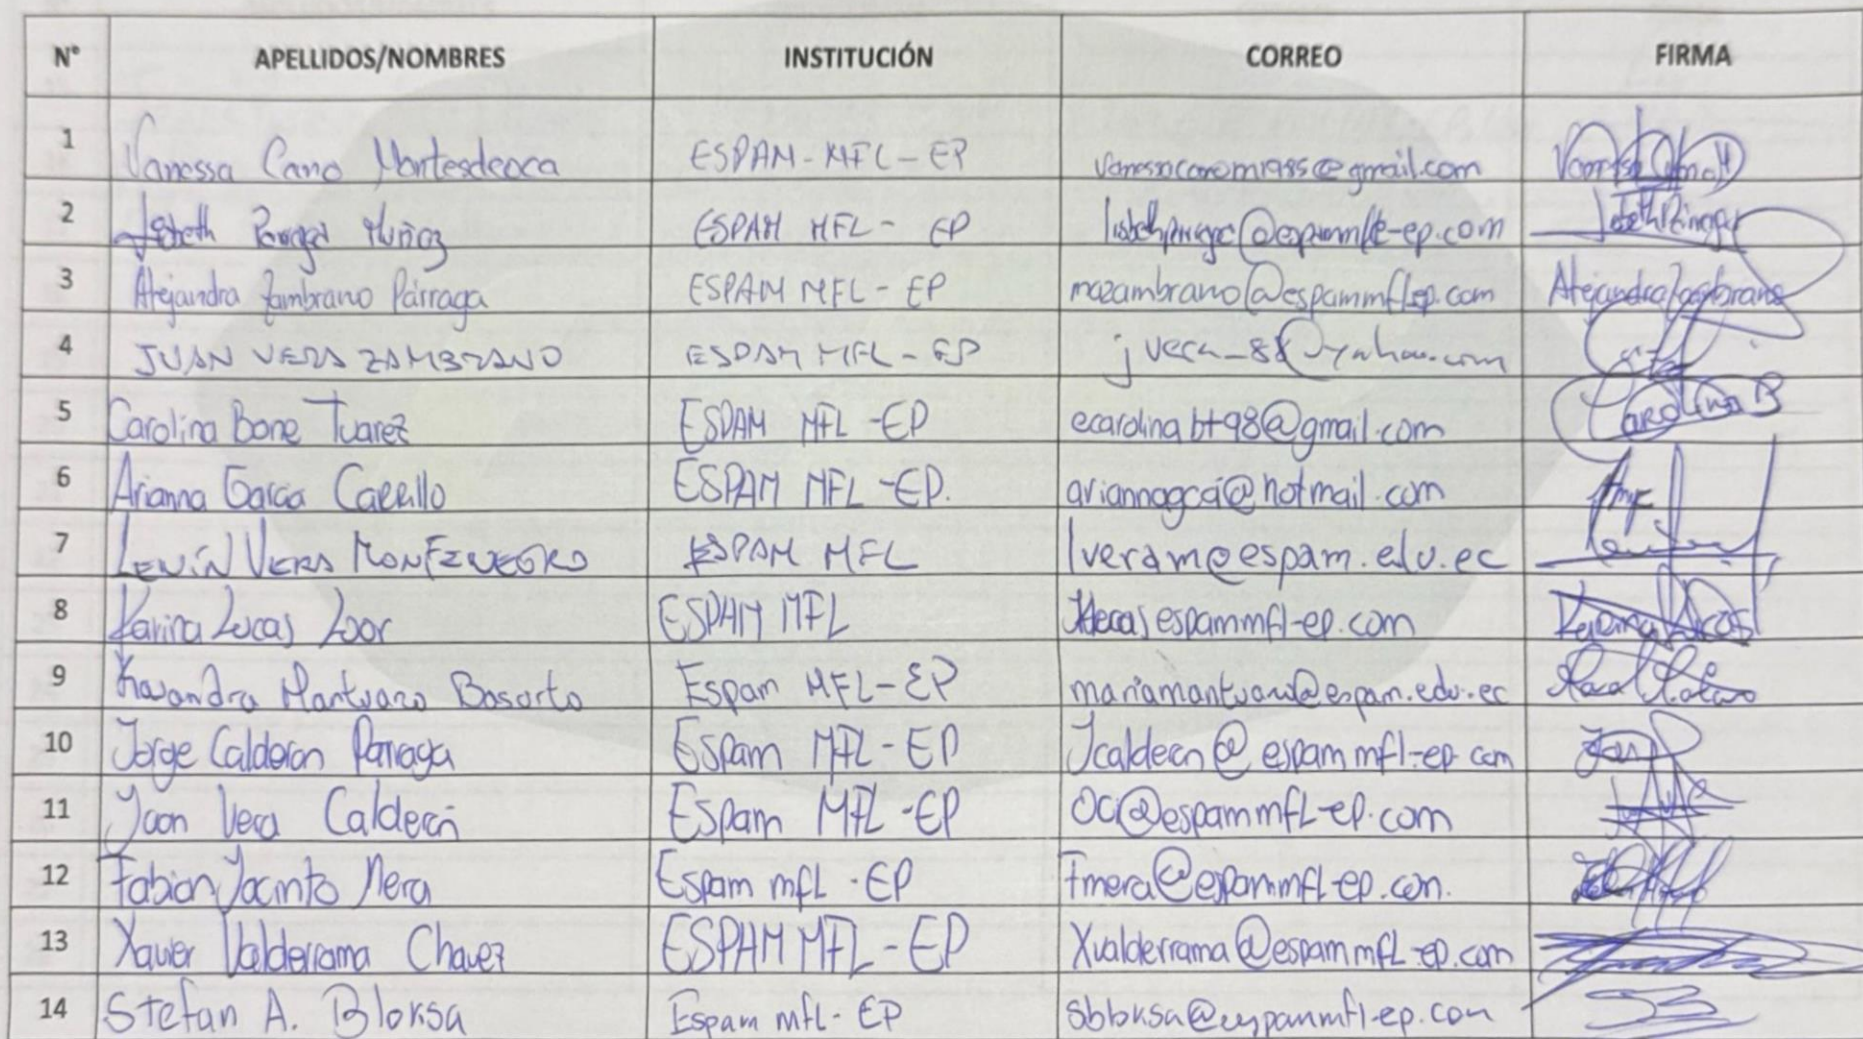 N° APELLIDOS/NOMBRES INSTITUCIÓN CORREO FIRMA
1 Vanessa Cano Montesdeoca ESPAM-MFL-EP vanessacanom1985@gmail.com
2 Lisbeth Muñoz ESPAM MFL- EP
3 Alejandra Zambrano Párraga ESPAM MFL- EP mazambrano@espammflep.com Alejandra Zambrano
4 JUAN VERA ZAMBRANO ESPAM MFL-EP jvera_88@yahoo.com
5 Carolina Bone Tuarez ESPAM MFL-EP ecarolinabt98@gmail.com Carolina B
6 Arianna Garcia Carrillo ESPAM MFL-EP.
7 LENÍN VERA MONTENEGRO ESPAM MFL lveram@espam.edu.ec
8 Karina Lucas Loor ESPAM MFL espammfl-ep.com
9 Mantuano Basurto Espam MFL-EP mariamantuano@espam.edu.ec
10 Jorge Calderon Parraga Espam MFL-EP Jcalderon@espammfl-ep.com
11 Juan Vera Calderón Espam MFL-EP Oci@espammfl-ep.com
12 Fabian Jacinto Mera Espam mfL-EP Fmera@espammfl-ep.com.
13 Xavier Valderrama Chavez ESPAM MFL-EP Xvalderrama@espammfl-ep.com
14 Stefan A. Bloksa Espam mfl-EP sbloksa@espammfl-ep.com